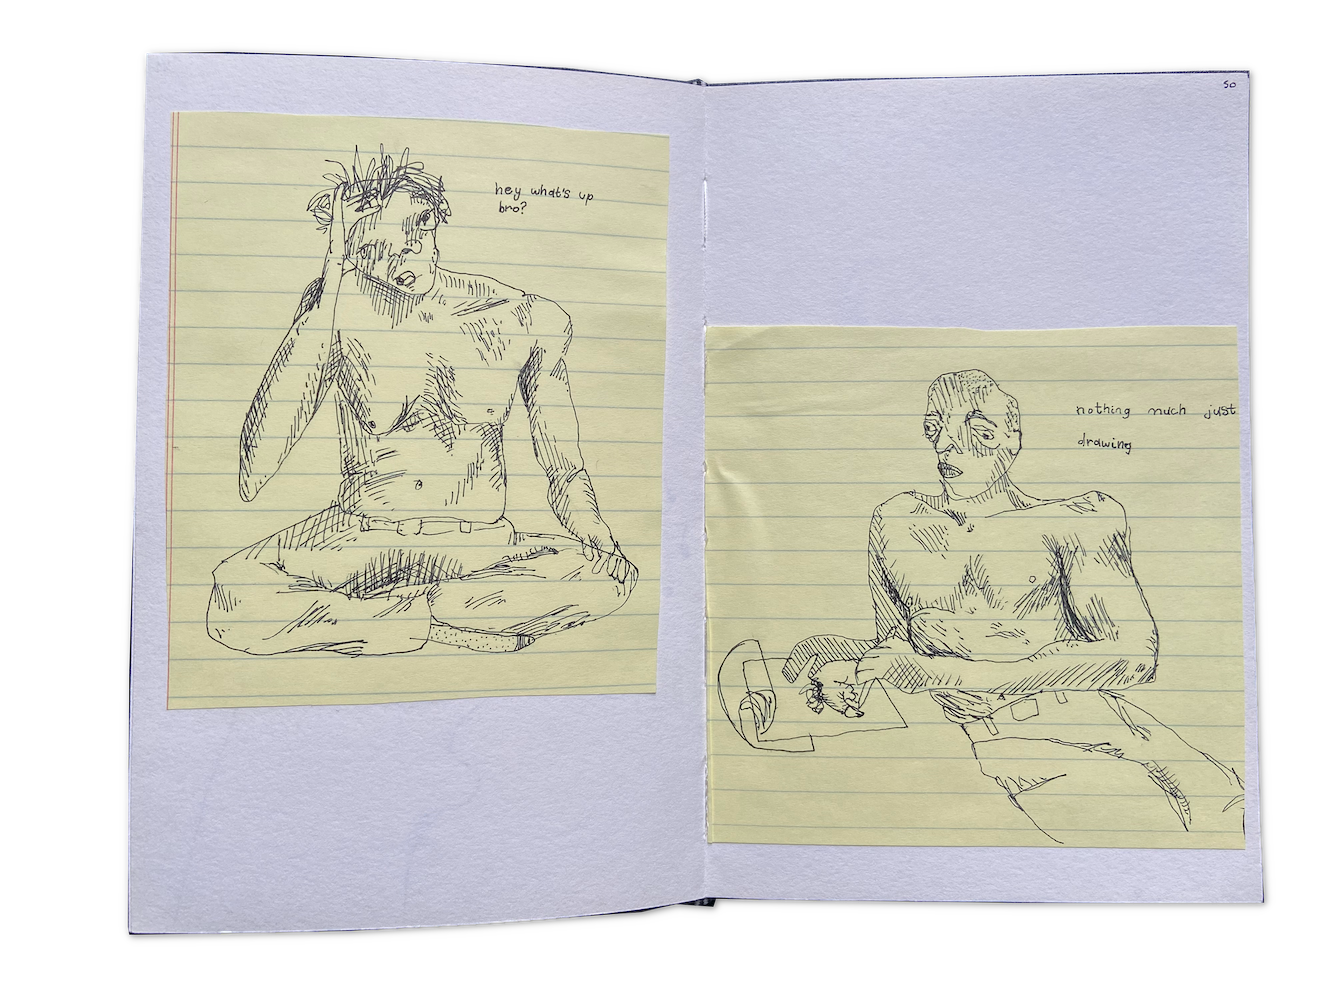 hey what's up
bro?
50
nothing much just
drawing